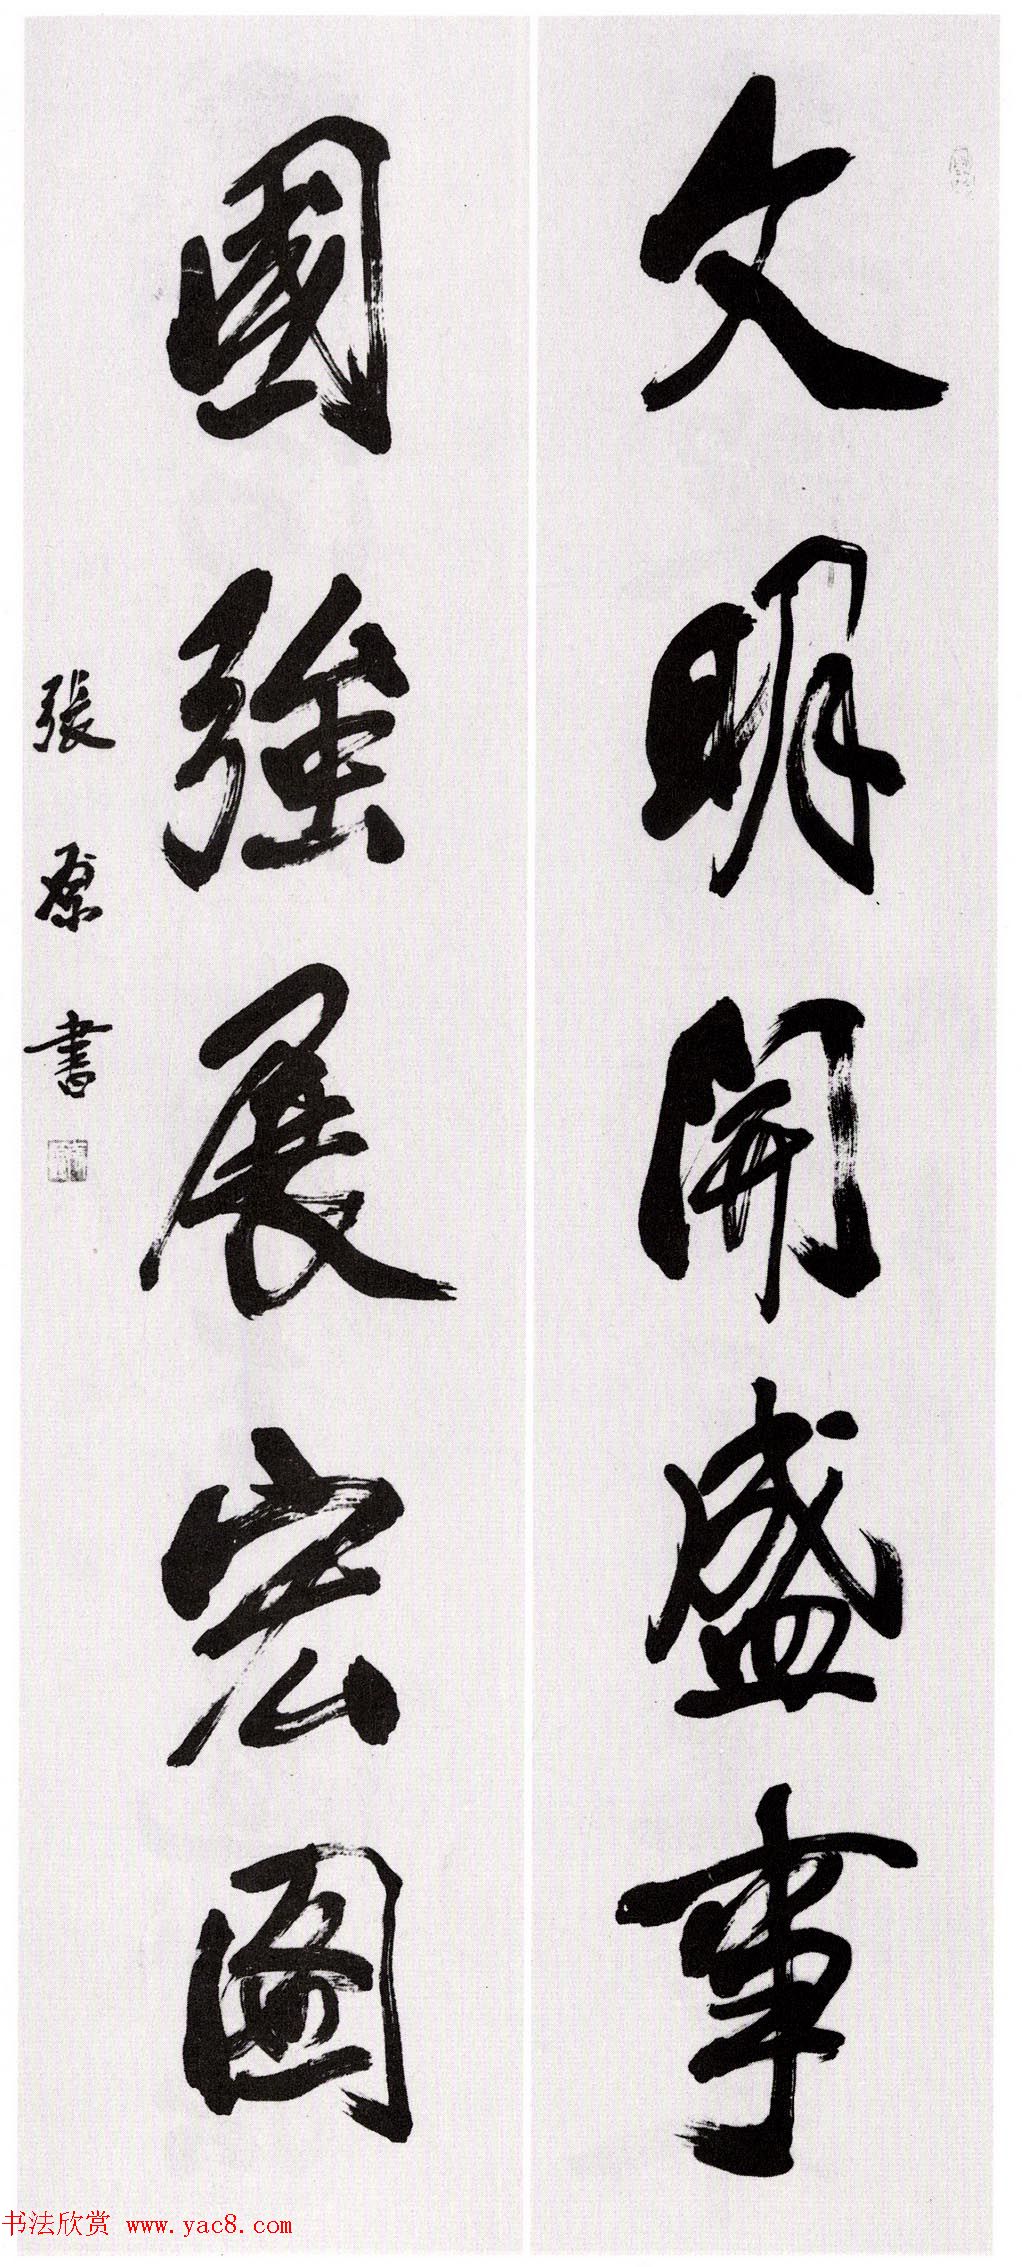 文明開盛事
國強展宏图
張飙書
书法欣赏 www.yac8.com